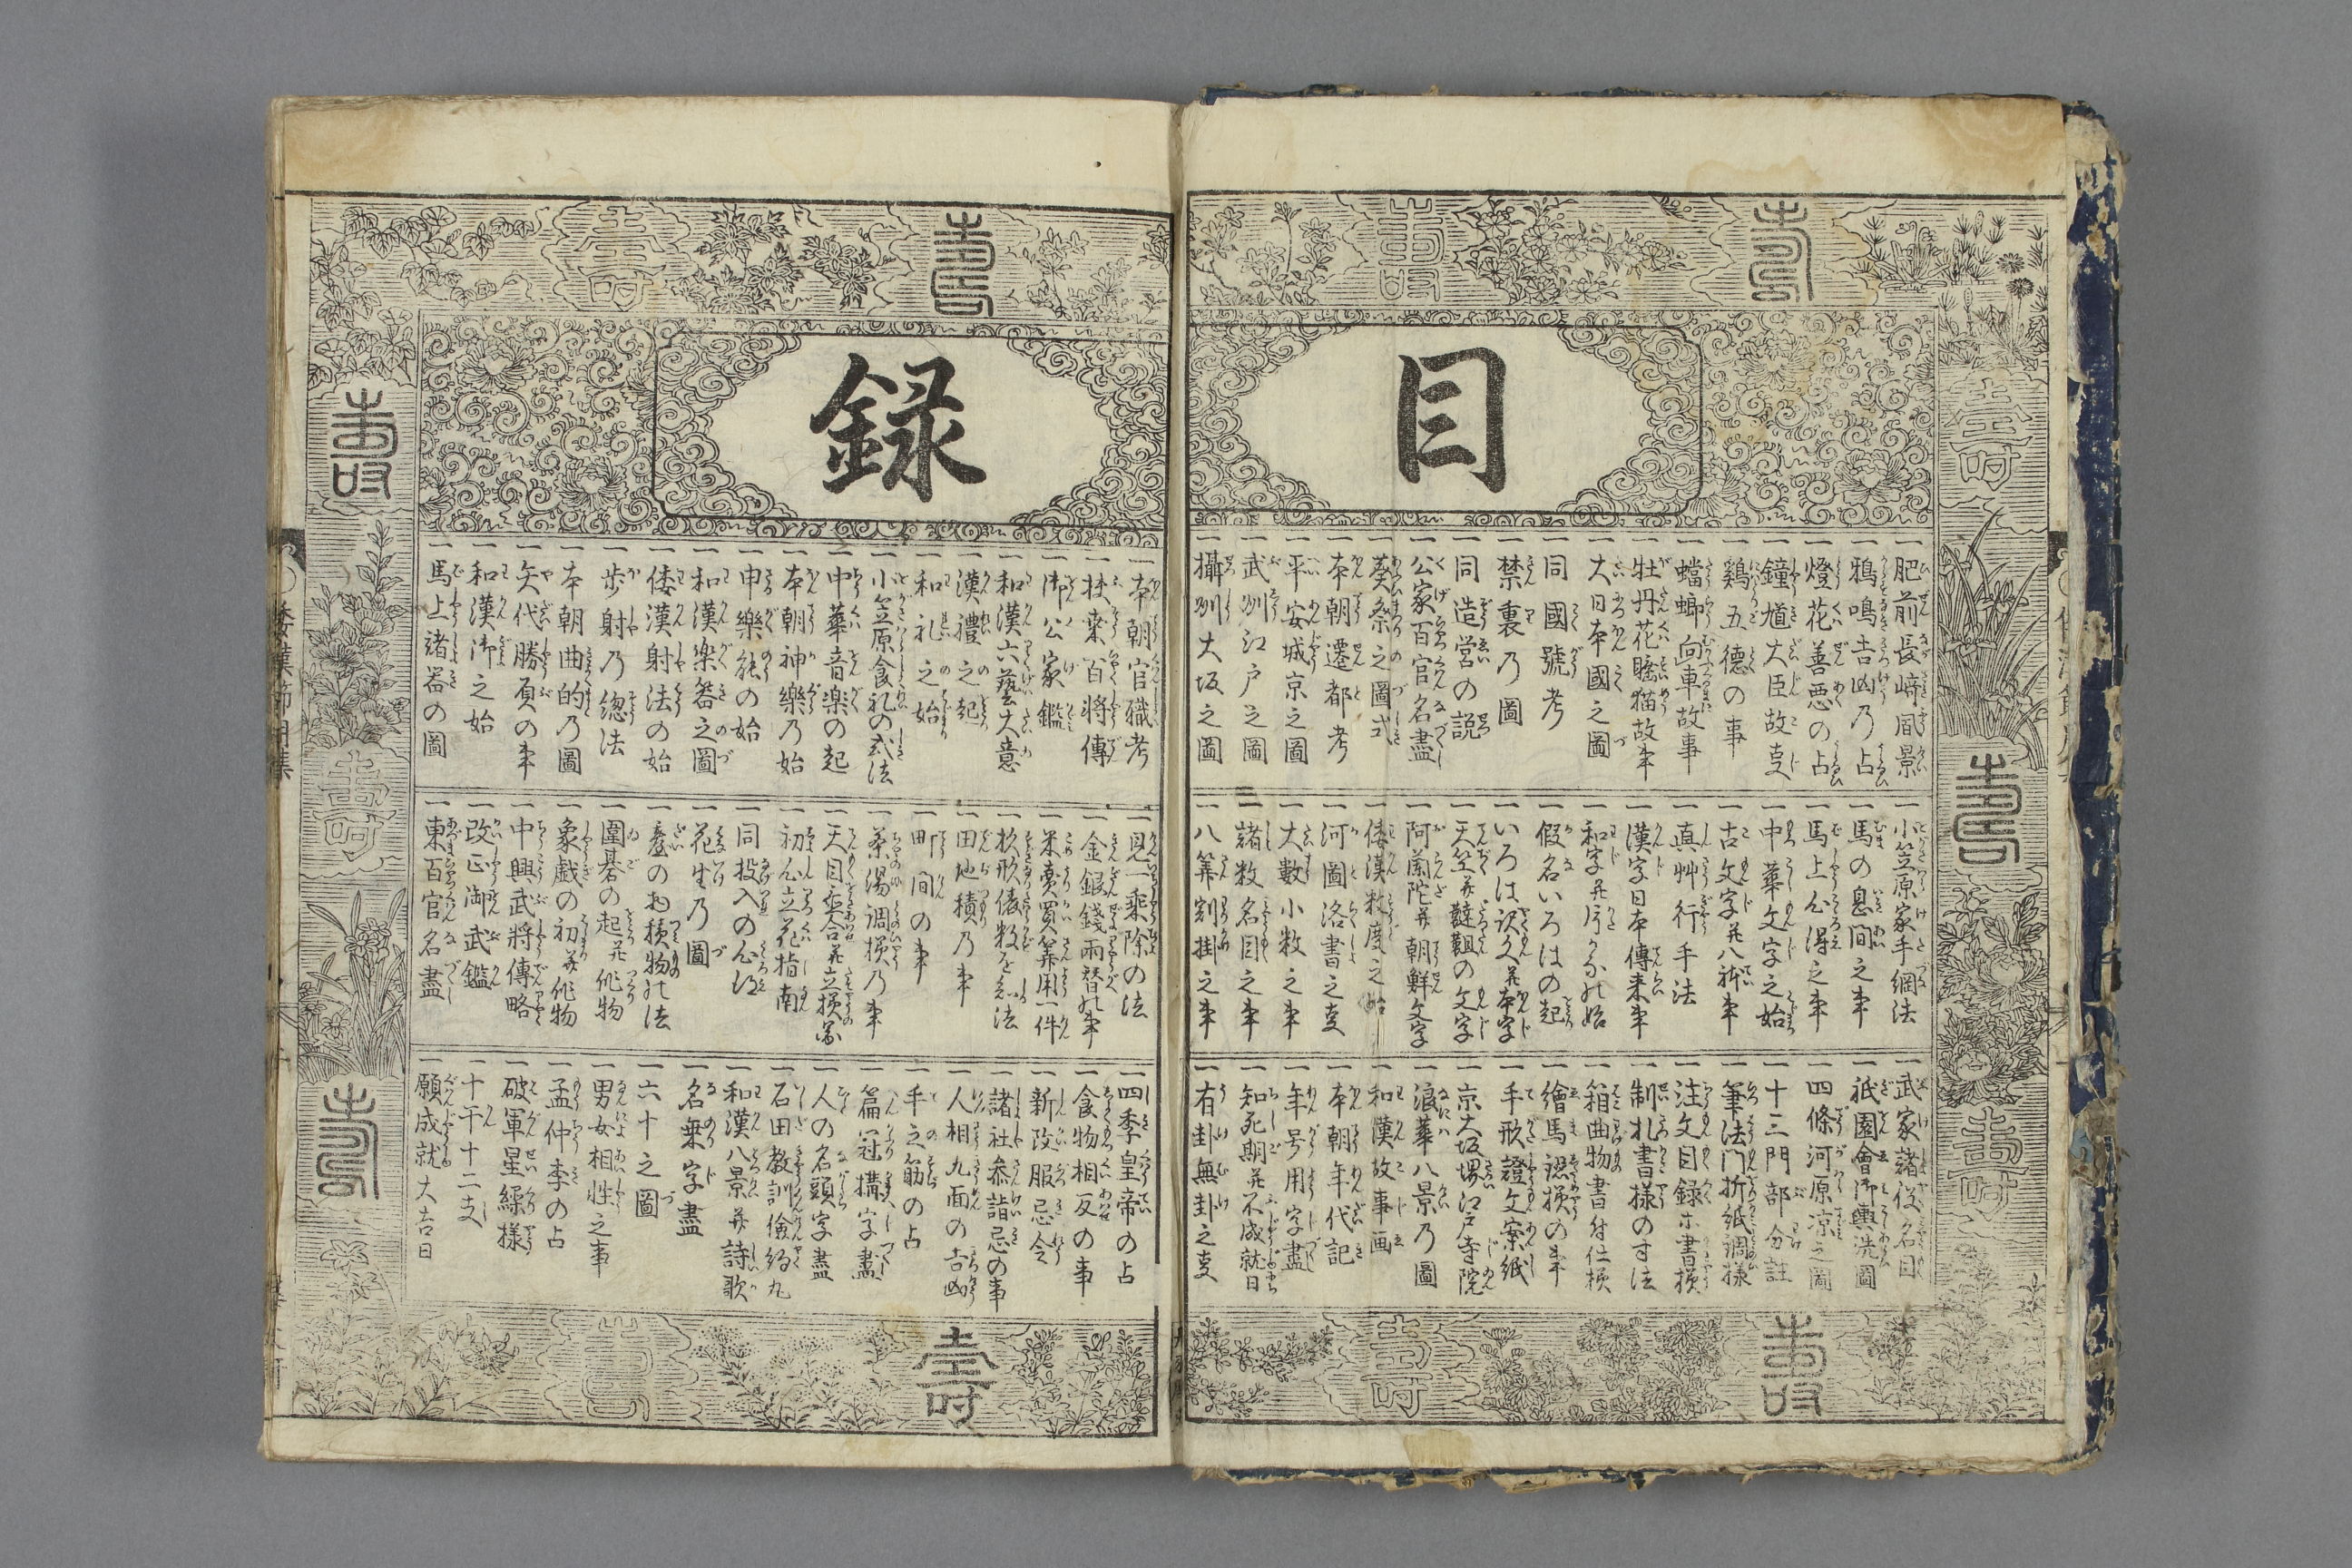 目録
一肥前長崎風景
一鴉鳴吉凶乃占
一燈花善悪の占
一鐘馗大臣故事
一鶏五德の事
一蟷螂向車故事
一牡丹花睡猫故事
一大日本國之圖
一同國號考
一禁裏乃圖
一同造営の説
一公家百官名盡
一葵祭之圖式
一本朝遷都考
一平安城京之圖
一武州江戸之圖
一攝州大坂之圖
一小笠原家手綱法
一馬の息間之事
一馬上心得之事
一中華文字之始
一古文字并八躰事
一真艸行手法
一漢字日本傳来事
一和字并片かな始
一假名いろはの起
一いろは訳文并本字
一天竺并韃靼の文字
一阿蘭陀并朝鮮文字
一倭漢数度之始
一河圖洛書之事
一大數小数之事
一諸数名目之事
一八算割掛之事
一武家諸役名目
一祇園會御輿洗圖
一四條河原凉之圖
一十三門部分註
一筆法門折紙調様
一注文目録書様
一制札書様の寸法
一箱曲物書付仕様
一繪馬認様の事
一手形證文案紙
一京大坂堺江戸寺院
一浪華八景乃圖
一和漢故事画
一本朝年代記
一年号用字盡
一知死期并不成就日
一有卦無卦之事
一本朝官職考
一扶桒百將傳
一御公家鑑
一和漢六藝大意
一漢禮之起
一和礼之始
一小笠原食礼の式法
一中華音楽の起
一本朝神樂乃始
一申樂能の始
一和漢楽器之圖
一倭漢射法の始
一歩射乃總法
一本朝曲的乃圖
一矢代勝負の事
一和漢御之始
一馬上諸器の圖
一見一乘除の法
一金銀錢両替の事
一米賣買算用一件
一杦形俵数を知法
一田地積乃事
一町間の事
一茶湯調様乃事
一天目臺合并立様
一初心立花指南
一同投入の心得
一花生乃圖
一臺のお積物の法
一圍碁の起并作物
一象戯の初并作物
一中興武將傳略
一改正御武鑑
一東百官名盡
一四季皇帝の占
一食物相反の事
一新改服忌令
一諸社参詣忌の事
一人相九面の吉凶
一手之筋の占
一篇冠搆字盡
一人の名頭字盡
一石田教訓儉約丸
一和漢八景并詩歌
一名乗字盡
一六十之圖
一男女相性之事
一孟仲季の占
一破軍星繰様
一十干十二支
一願成就大吉日
倭漢節用集